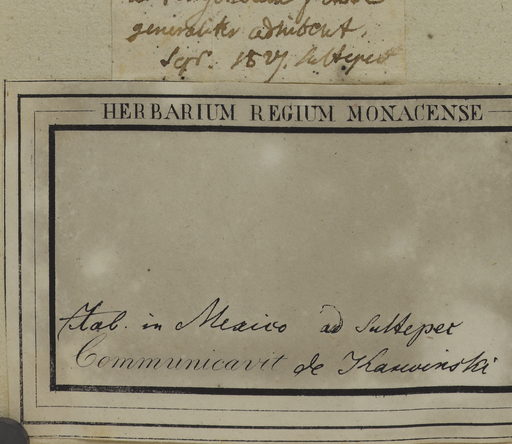 generaliter adhibent.
Sept. 1827. Sultepec
HERBARIUM REGIUM MONACENSE
Hab. in Mexico ad Sultepec
Communicavit de Karwinski